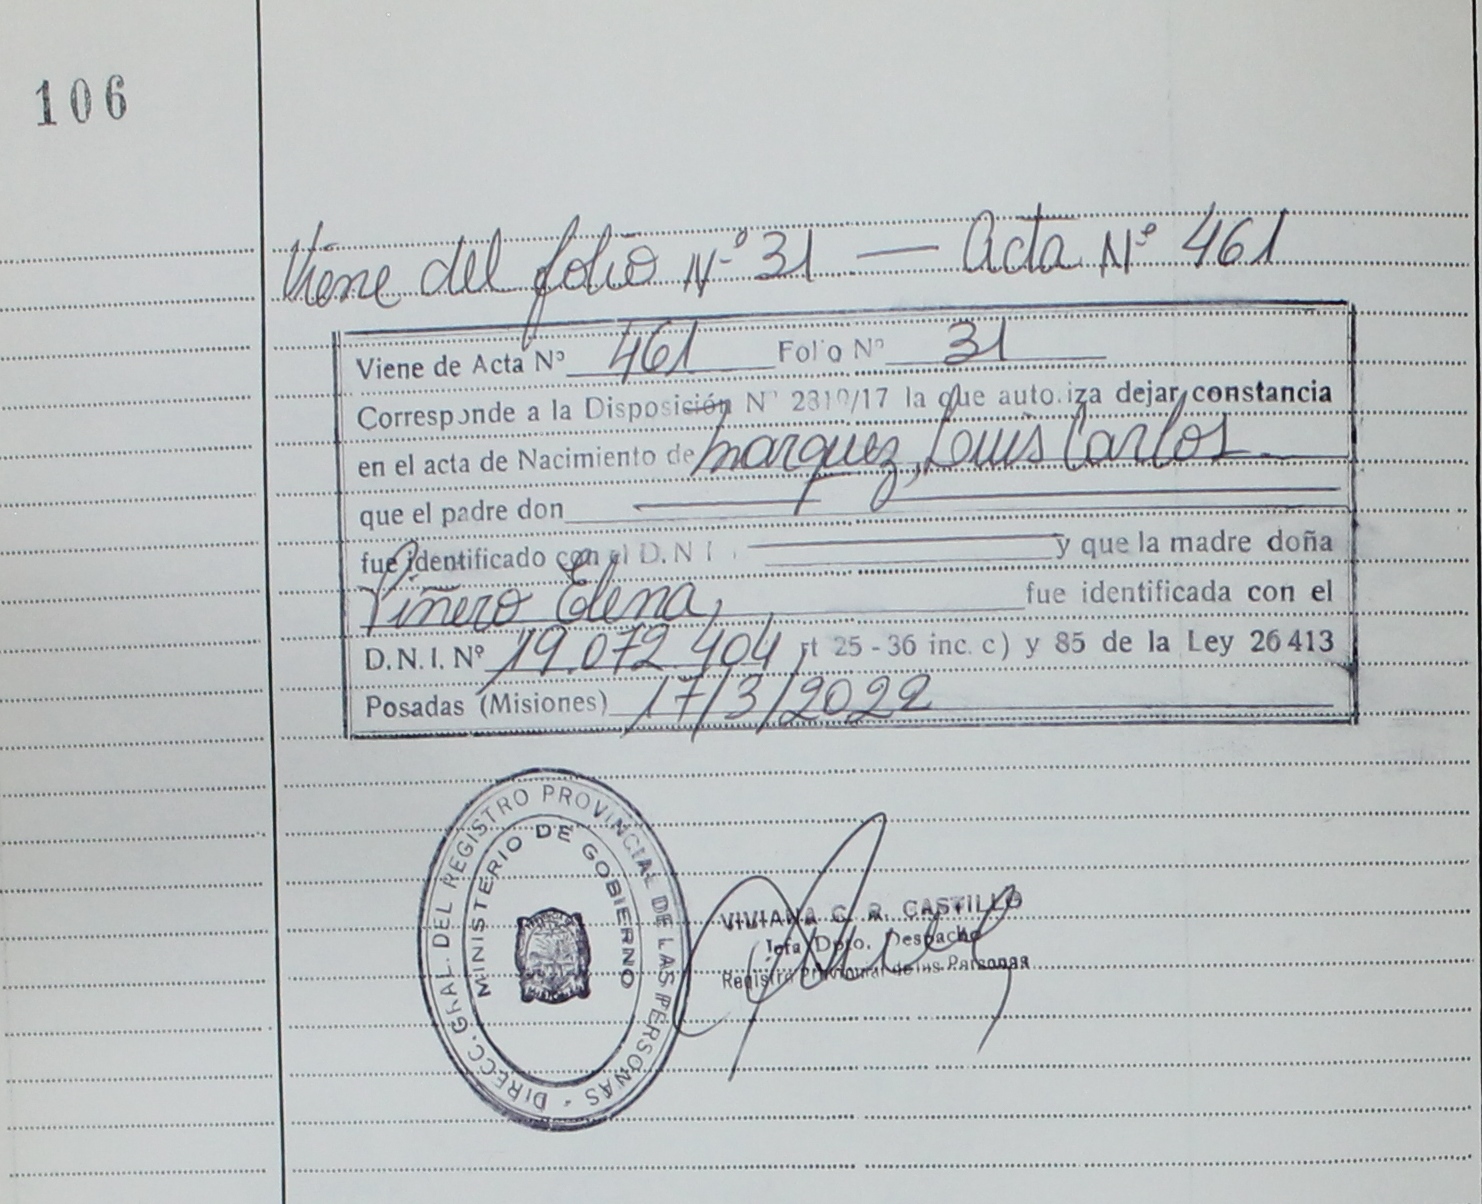 106
Viene del folio Nº 31 — Acta Nº 461
Viene de Acta Nº 461 Folio Nº 31
Corresponde a la Disposición Nº 2310/17 la que autoriza dejar constancia
en el acta de Nacimiento de Marquez, Luis Carlos
que el padre don
fue identificado con el D.N.I. y que la madre doña
Viñero Elena, fue identificada con el
D.N.I. Nº 19.072.404 rt 25 - 36 inc. c) y 85 de la Ley 26413
Posadas (Misiones) 17/3/2022
DIRECC. GRAL. DEL REGISTRO PROVINCIAL DE LAS PERSONAS -
MINISTERIO DE GOBIERNO
VIVIANA C. R. CASTILLO
Jefa Dpto. Despacho
Registro Provincial de las Personas